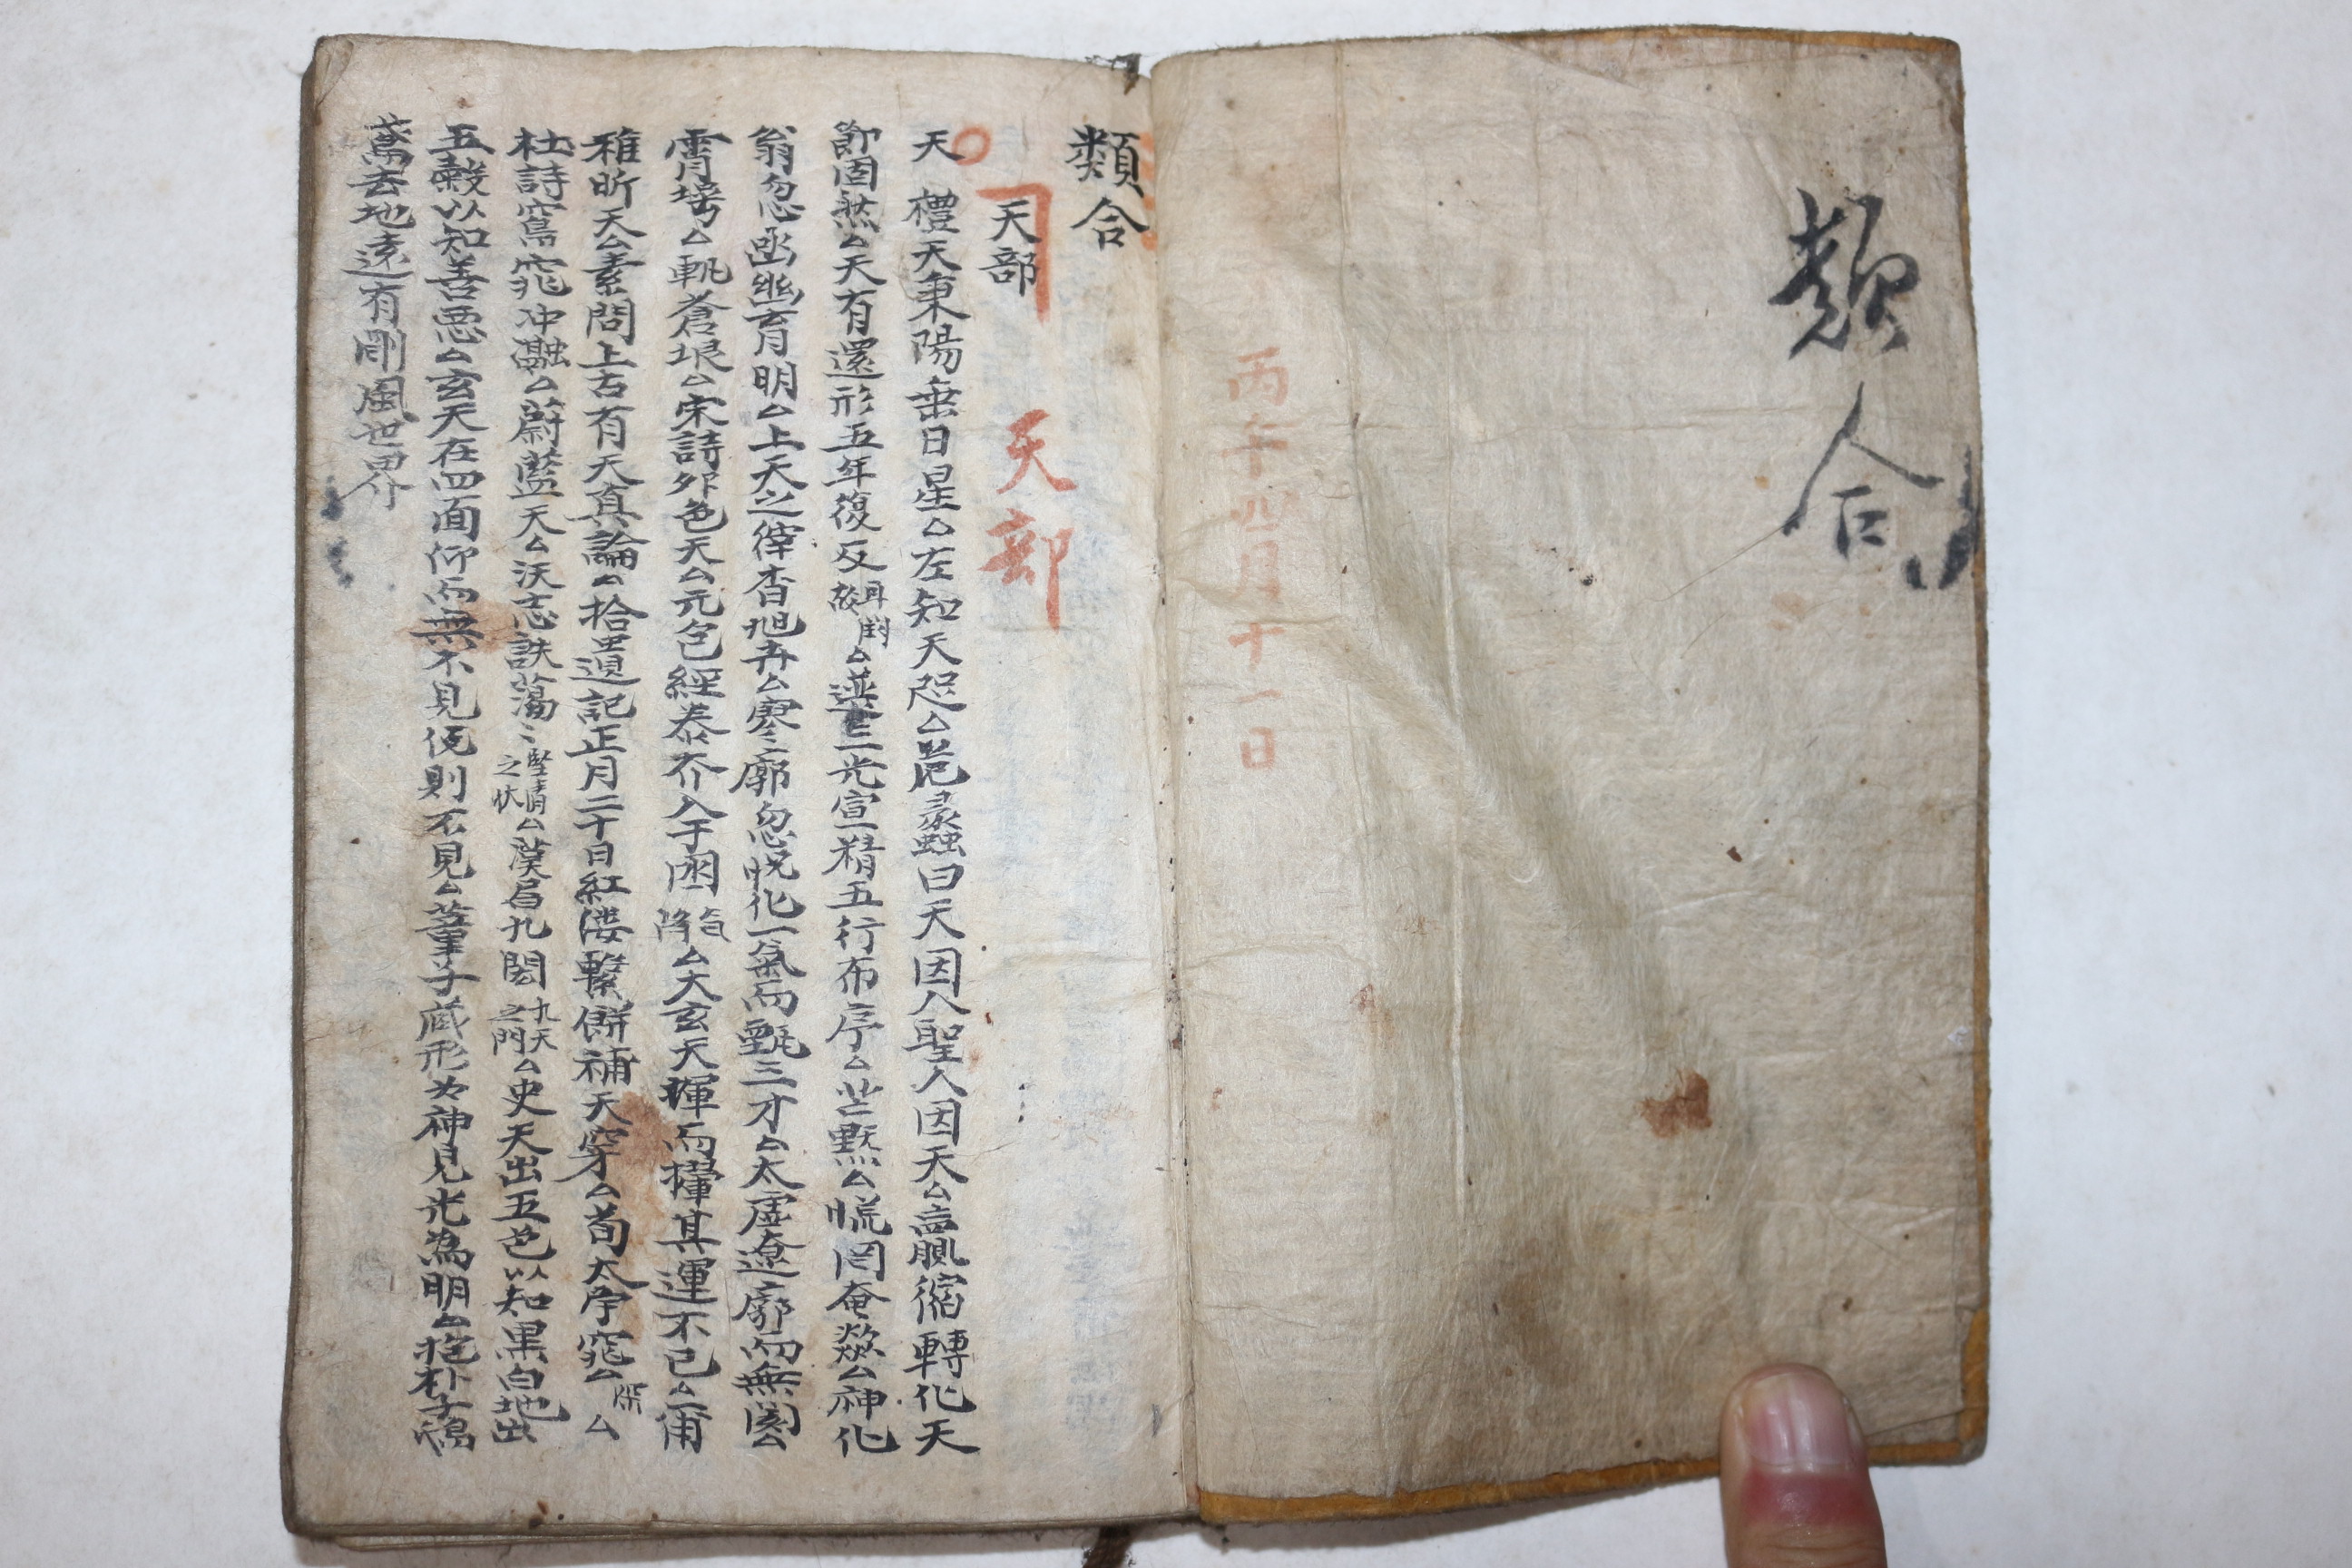 類合
丙午四月十一日
類合
天部
天部
天 禮天秉陽垂日星△左知天咫△邑蠡曰天因人聖人因天△盈贏縮轉化天
節固然△天有還形五年復反△三光宣精五行布序△芒黙△慌罔奄欻△神化
翁忽幽育明△上天之縡杳旭卉△寥廓忽恍化一氣而甄三才△太虛遼廓而無閡△
霄㙜△蒼垠△宋詩卵色天△元包經泰夰入于囦△大玄天渾而攆其運不已△甫
稚昕天△素問上古有天真論△拾遺記正月二十日紅縷繫餅補天穿△荀太宇窕△△
杜詩窵窕沖融△蔚藍天△沃志詄蕩〻堅清之狀△漠扃九閎九天之門△史天出五色以知黒白地出
五穀以知善惡△玄天在四面仰而無不見俛則不見△董子蔵形為神見光為明△抱朴子
鳶去地遠有剛風世界